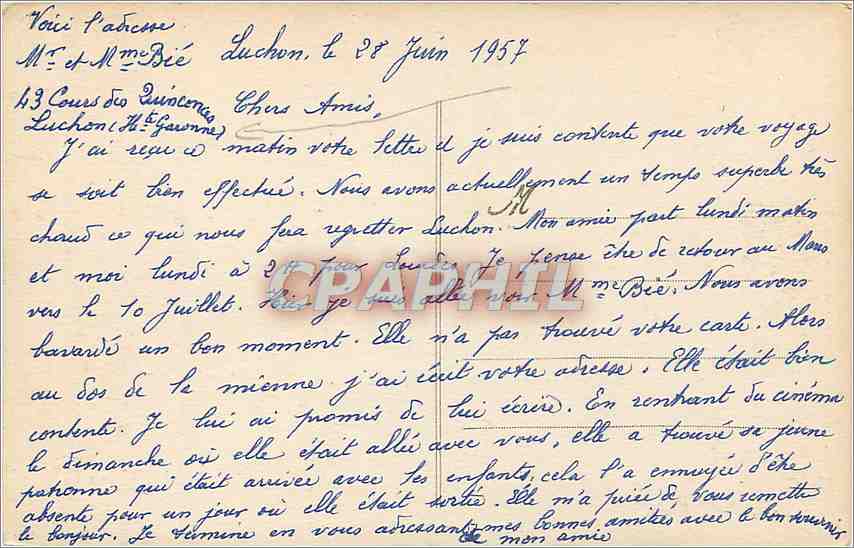 Voici l'adresse
Mr et Mme Bié
43 Cours des Quinconces
Luchon (Hte Garonne)
Luchon, le 28 Juin 1957
Chers Amis,
J'ai reçu ce matin votre lettre et je suis contente que votre voyage
se soit bien effectué. Nous avons actuellement un temps superbe très
chaud ce qui nous fera regretter Luchon. Mon amie part lundi matin
et moi lundi à 2H pour Lourdes. Je pense être de retour au Mans
vers le 10 Juillet. Hier je suis allée voir Mme Bié. Nous avons
bavardé un bon moment. Elle n'a pas trouvé votre carte. Alors
au dos de la mienne j'ai écrit votre adresse. Elle était bien
contente. Je lui ai promis de lui écrire. En rentrant du cinéma
le dimanche où elle était allée avec vous, elle a trouvé sa jeune
patronne qui était arrivée avec les enfants, cela l'a ennuyée d'être
absente pour un jour où elle était sortie. Elle m'a priée de vous remettre
le bonjour. Je termine en vous adressant mes bonnes amitiés avec le bon souvenir
de mon amie
M
CPARPHIL